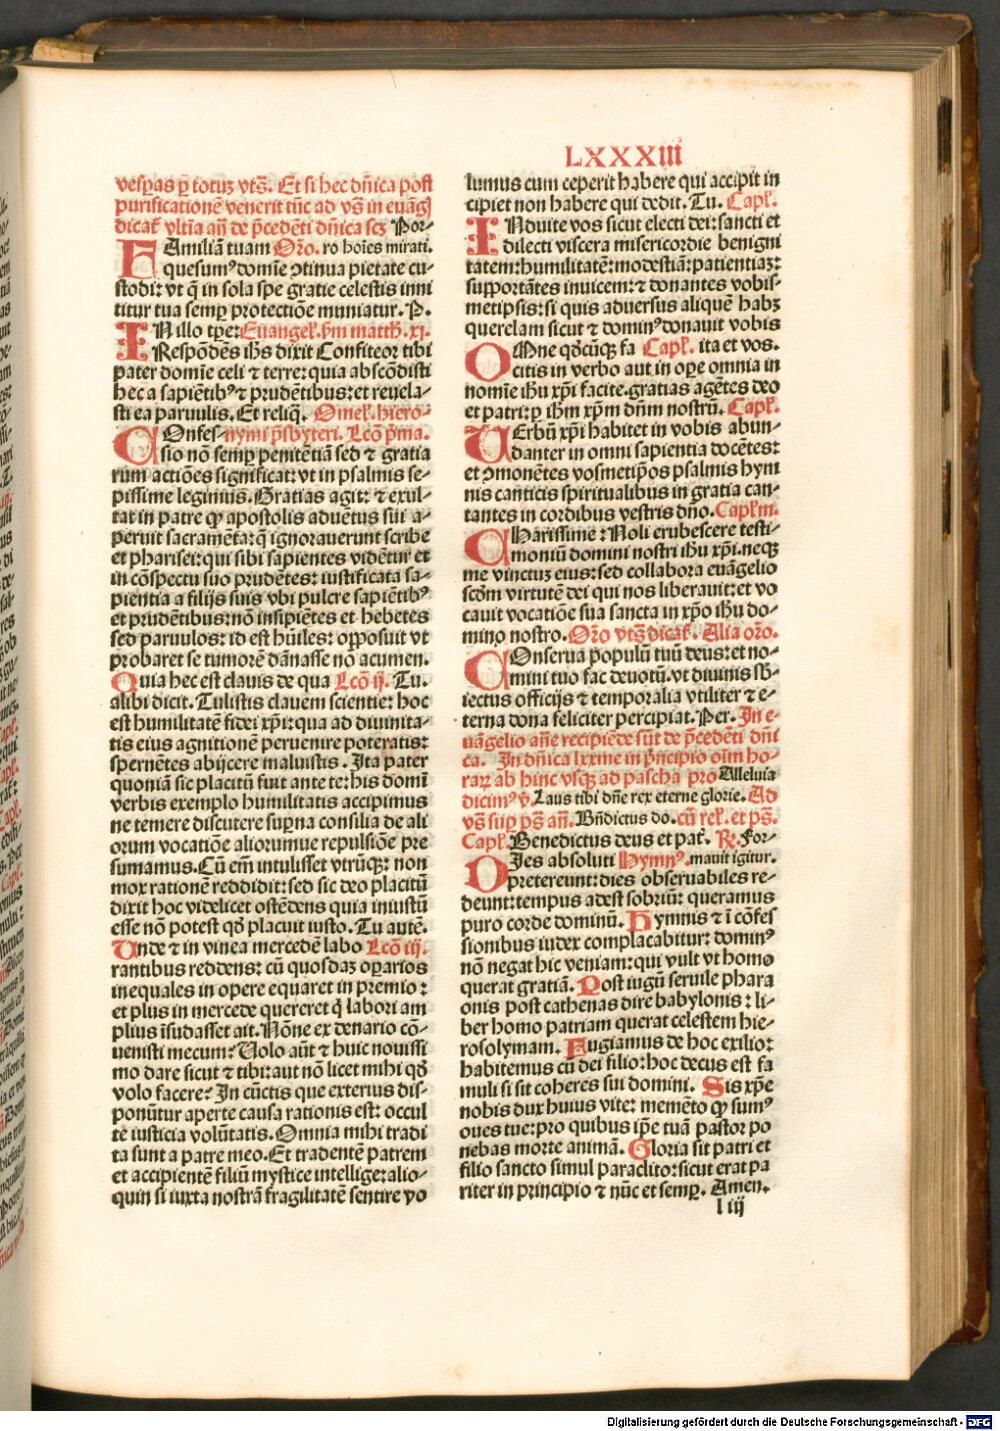 LXXXIII
vesp̲as p̲ totuʒ vtꝫ. Et si hec dn̄ica post
purificationē venerit tūc ad vꝫ in euāgl̄
dicat᷑ vltīa an̄ de p̄cedēti dn̄ica scʒ Por-
FAmiliā tuam Oro. ro hoīes mirati.
quesumꝰ domīe ꝯtinua pietate cu-
stodi: vt q̄ in sola spe gratie celestis inni
titur tua semp̲ protectiōe muniatur. P.
IN illo tp̄e: Euangeł. p̄m matth̄. xj.
Respōdēs ih̄s dixit Confiteor tibi
pater domīe celi ⁊ terre: quia abscōdisti
hec a sapiētibꝰ ⁊ prudētibus: et reuela-
sti ea paruulis. Et reliq̄. Omeł. hiero-
COnfes- nymi p̄sbyteri. Lcō p̄ma.
sio nō semp̲ penitētiā sed ⁊ gratia
rum actiōes significat: vt in psalmis se-
pissime legimus. Gratias agit: ⁊ exul-
tat in patre ꝙ apostolis aduētus sui a-
peruit sacramēta: q̄ ignorauerunt scribe
et pharisei: qui sibi sapientes vidētur et
in cōspectu suo prudētes: iustificata sa-
pientia a filijs suis vbi pulcre sapiētibꝰ
et prudētibus: nō insipiētes et hebetes
sed paruulos: id est hūiles: opposuit vt
probaret se tumorē dānasse nō acumen.
Quia hec est clauis de qua Lcō ij. Tu.
alibi dicit. Tulistis clauem scientie: hoc
est humilitatē fidei xp̄i: qua ad diuinita-
tis eius agnitionē peruenire poteratis:
spernētes abijcere maluistis. Ita pater
quoniā sic placitū fuit ante te: his domī
verbis exemplo humilitatis accipimus
ne temere discutere sup̲na consilia de ali
orum vocatiōe aliorumue repulsiōe pre
sumamus. Cū em̄ intulisset vtrūqꝫ: non
mox rationē reddidit: sed sic deo placitū
dixit hoc videlicet ostēdens quia iniustū
esse nō potest qđ placuit iusto. Tu autē.
Unde ⁊ in vinea mercedē labo Lcō iij.
rantibus reddens: cū quosdaʒ op̲arios
inequales in opere equaret in premio:
et plus in mercede quereret q̄ labori am
plius īsudasset ait. Nōne ex denario cō-
uenisti mecum? Uolo aūt ⁊ huic nouissi
mo dare sicut ⁊ tibi: aut nō licet mihi qđ
volo facere? In cūctis que exterius dis-
ponūtur aperte causa rationis est: occul
te iusticia volūtatis. Omnia mihi tradi
ta sunt a patre meo. Et tradentē patrem
et accipientē filiū mystice intellige: alio-
quin si iuxta nostrā fragilitatē sentire vo
lumus cum ceperit habere qui accipit in
cipiet non habere qui dedit. Tu. Capł.
INduite vos sicut electi dei: sancti et
dilecti viscera misericordie benigni
tatem: humilitatē: modestiā: patientiaʒ:
supportātes inuicem: ⁊ donantes vobis-
metipsis: si quis aduersus aliquē habꝫ
querelam sicut ⁊ dominꝰ donauit vobis
OMne qđcūqꝫ fa Capł. ita et vos.
citis in verbo aut in op̲e omnia in
nomīe ih̄u xp̄i facite. gratias agētes deo
et patri: p̲ ih̄m xp̄m dn̄m nostrū. Capł.
UErbū xp̄i habitet in vobis abun-
danter in omni sapientia docētes:
et ꝯmonētes vosmetip̄os psalmis hym
nis canticis spiritualibus in gratia can-
tantes in cordibus vestris dn̄o. Capłm.
CHarissime: Noli erubescere testi-
moniū domini nostri ih̄u xp̄i. neqꝫ
me vinctuʒ eius: sed collabora euāgelio
scdm virtutē dei qui nos liberauit: et vo
cauit vocatiōe sua sancta in xp̄o ih̄u do-
mino nostro. Oro vtꝫ dicat᷑. Alia oro.
COnserua populū tuū deus: et no-
mini tuo fac deuotū. vt diuinis sb̄-
iectus officijs ⁊ temporalia vtiliter ⁊ e-
terna dona feliciter percipiat. Per. In e-
uāgelio an̄e recipiēde sūt de p̄cedēti dn̄i
ca. In dn̄ica lxxme in p̄ncipio oīm ho-
rarꝝ ab hinc vsqꝫ ad pascha pro Alleluia
dicimꝰ v̄. Laus tibi dn̄e rex eterne glorie. Ad
vꝫ sup̲ pꝫ an̄. Bn̄dictus do. cū rel̄. et pꝫ.
Capł. Benedictus deus et pat᷑. ℞. For-
DIes absoluti Hymnꝰ. mauit igitur.
pretereunt: dies obseruabiles re-
deunt: tempus adest sobriū: queramus
puro corde dominū. Hymnis ⁊ ī cōfes
sionibus iudex complacabitur: dominꝰ
nō negat hic veniam: qui vult vt homo
querat gratiā. Post iugū seruile phara
onis post cathenas dire babylonis: li-
ber homo patriam querat celestem hie-
rosolymam. Fugiamus de hoc exilio:
habitemus cū dei filio: hoc decus est fa
muli si sit coheres sui domini. Sis xp̄e
nobis dux huius vite: memēto ꝙ sumꝰ
oues tue: pro quibus ip̄e tuā pastor po
nebas morte animā. Gloria sit patri et
filio sancto simul paraclito: sicut erat pa
riter in principio ⁊ nūc et semp̲. Amen.
l iij
Digitalisierung gefördert durch die Deutsche Forschungsgemeinschaft - DFG